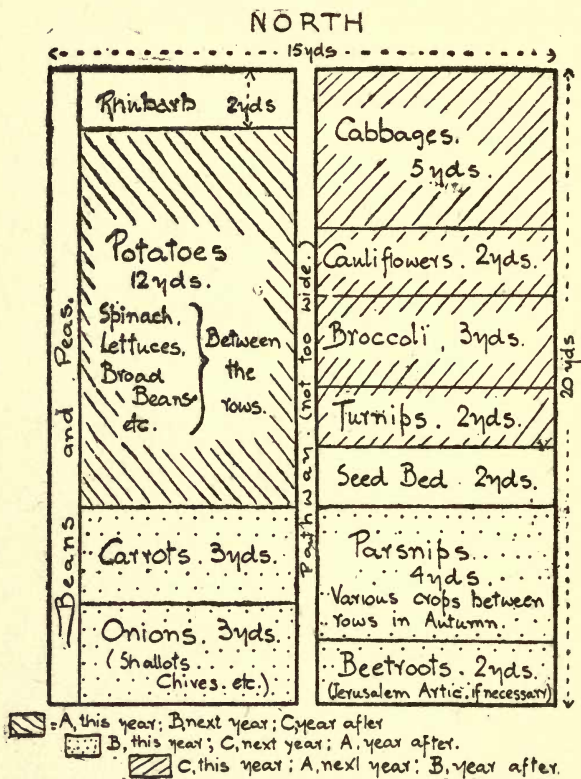 NORTH
15yds
Rhubarb 2yds
Potatoes
12yds.
Spinach,
Lettuces,
Broad
Beans
etc.
Between
the
rows.
Carrots. 3yds.
Onions. 3yds.
(Shallots
Chives. etc.)
Beans and Peas.
Pathway (not too wide.)
Cabbages.
5yds.
Cauliflowers. 2yds.
Broccoli, 3yds.
Turnips. 2yds.
Seed Bed. 2yds.
Parsnips.
4yds
Various crops between
rows in Autumn.
Beetroots. 2yds.
(Jerusalem Artic. if necessary)
20 yds
= A, this year; B, next year; C, year after
B, this year; C, next year; A, year after.
C, this year; A, next year; B, year after.